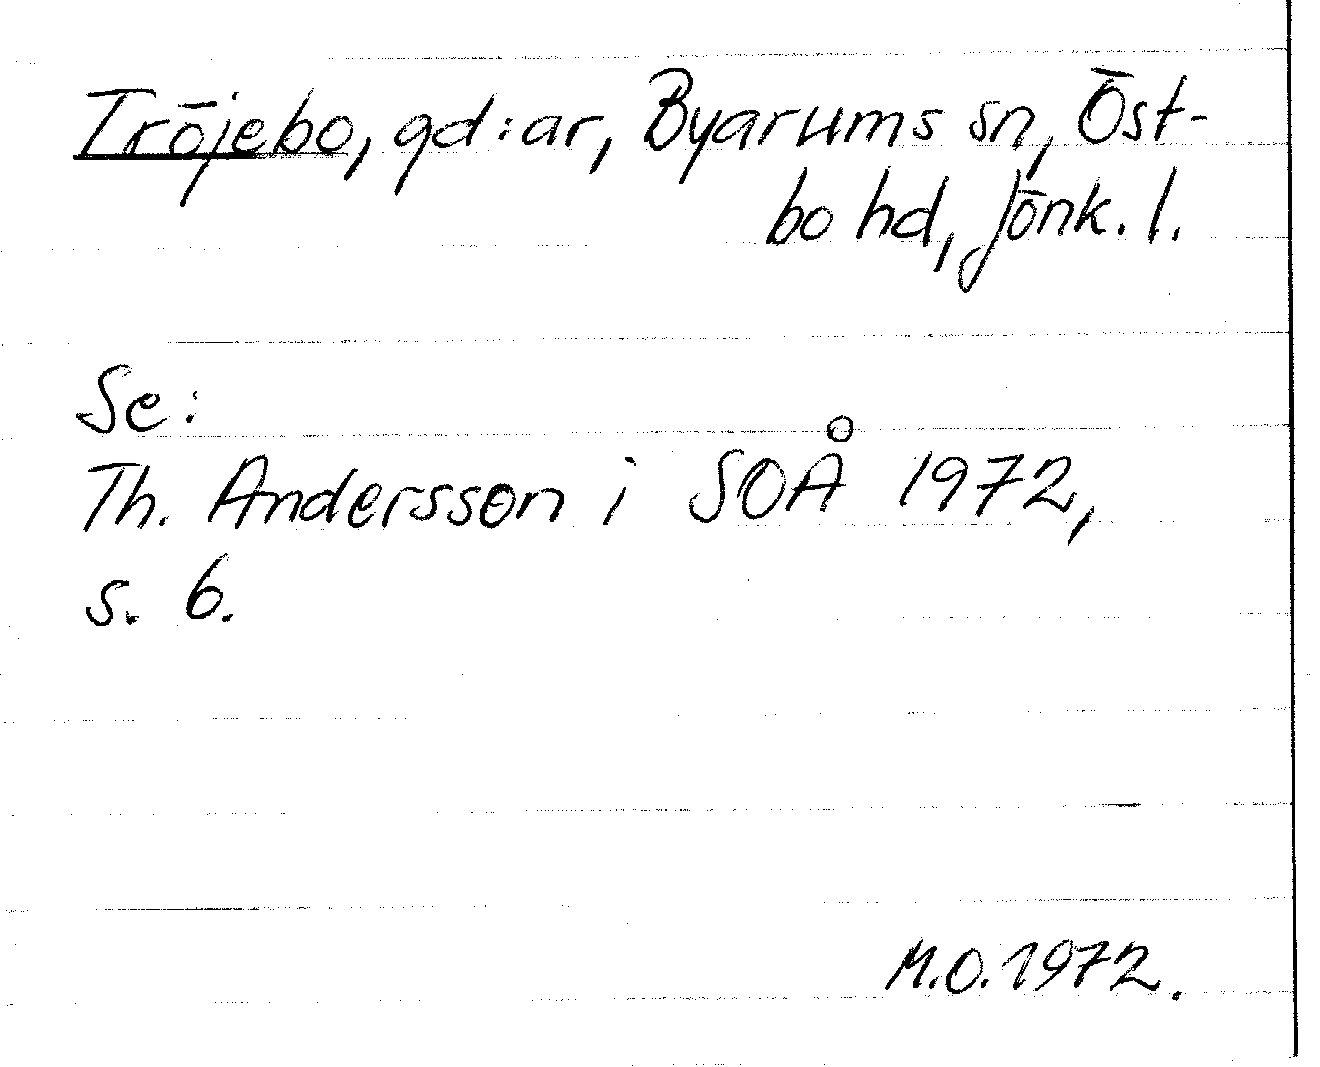 Tröjebo, gd:ar, Byarums sn, Öst-
bo hd, Jönk. l.
Se:
Th. Andersson i SOÅ 1972,
s. 6.
M.O. 1972.